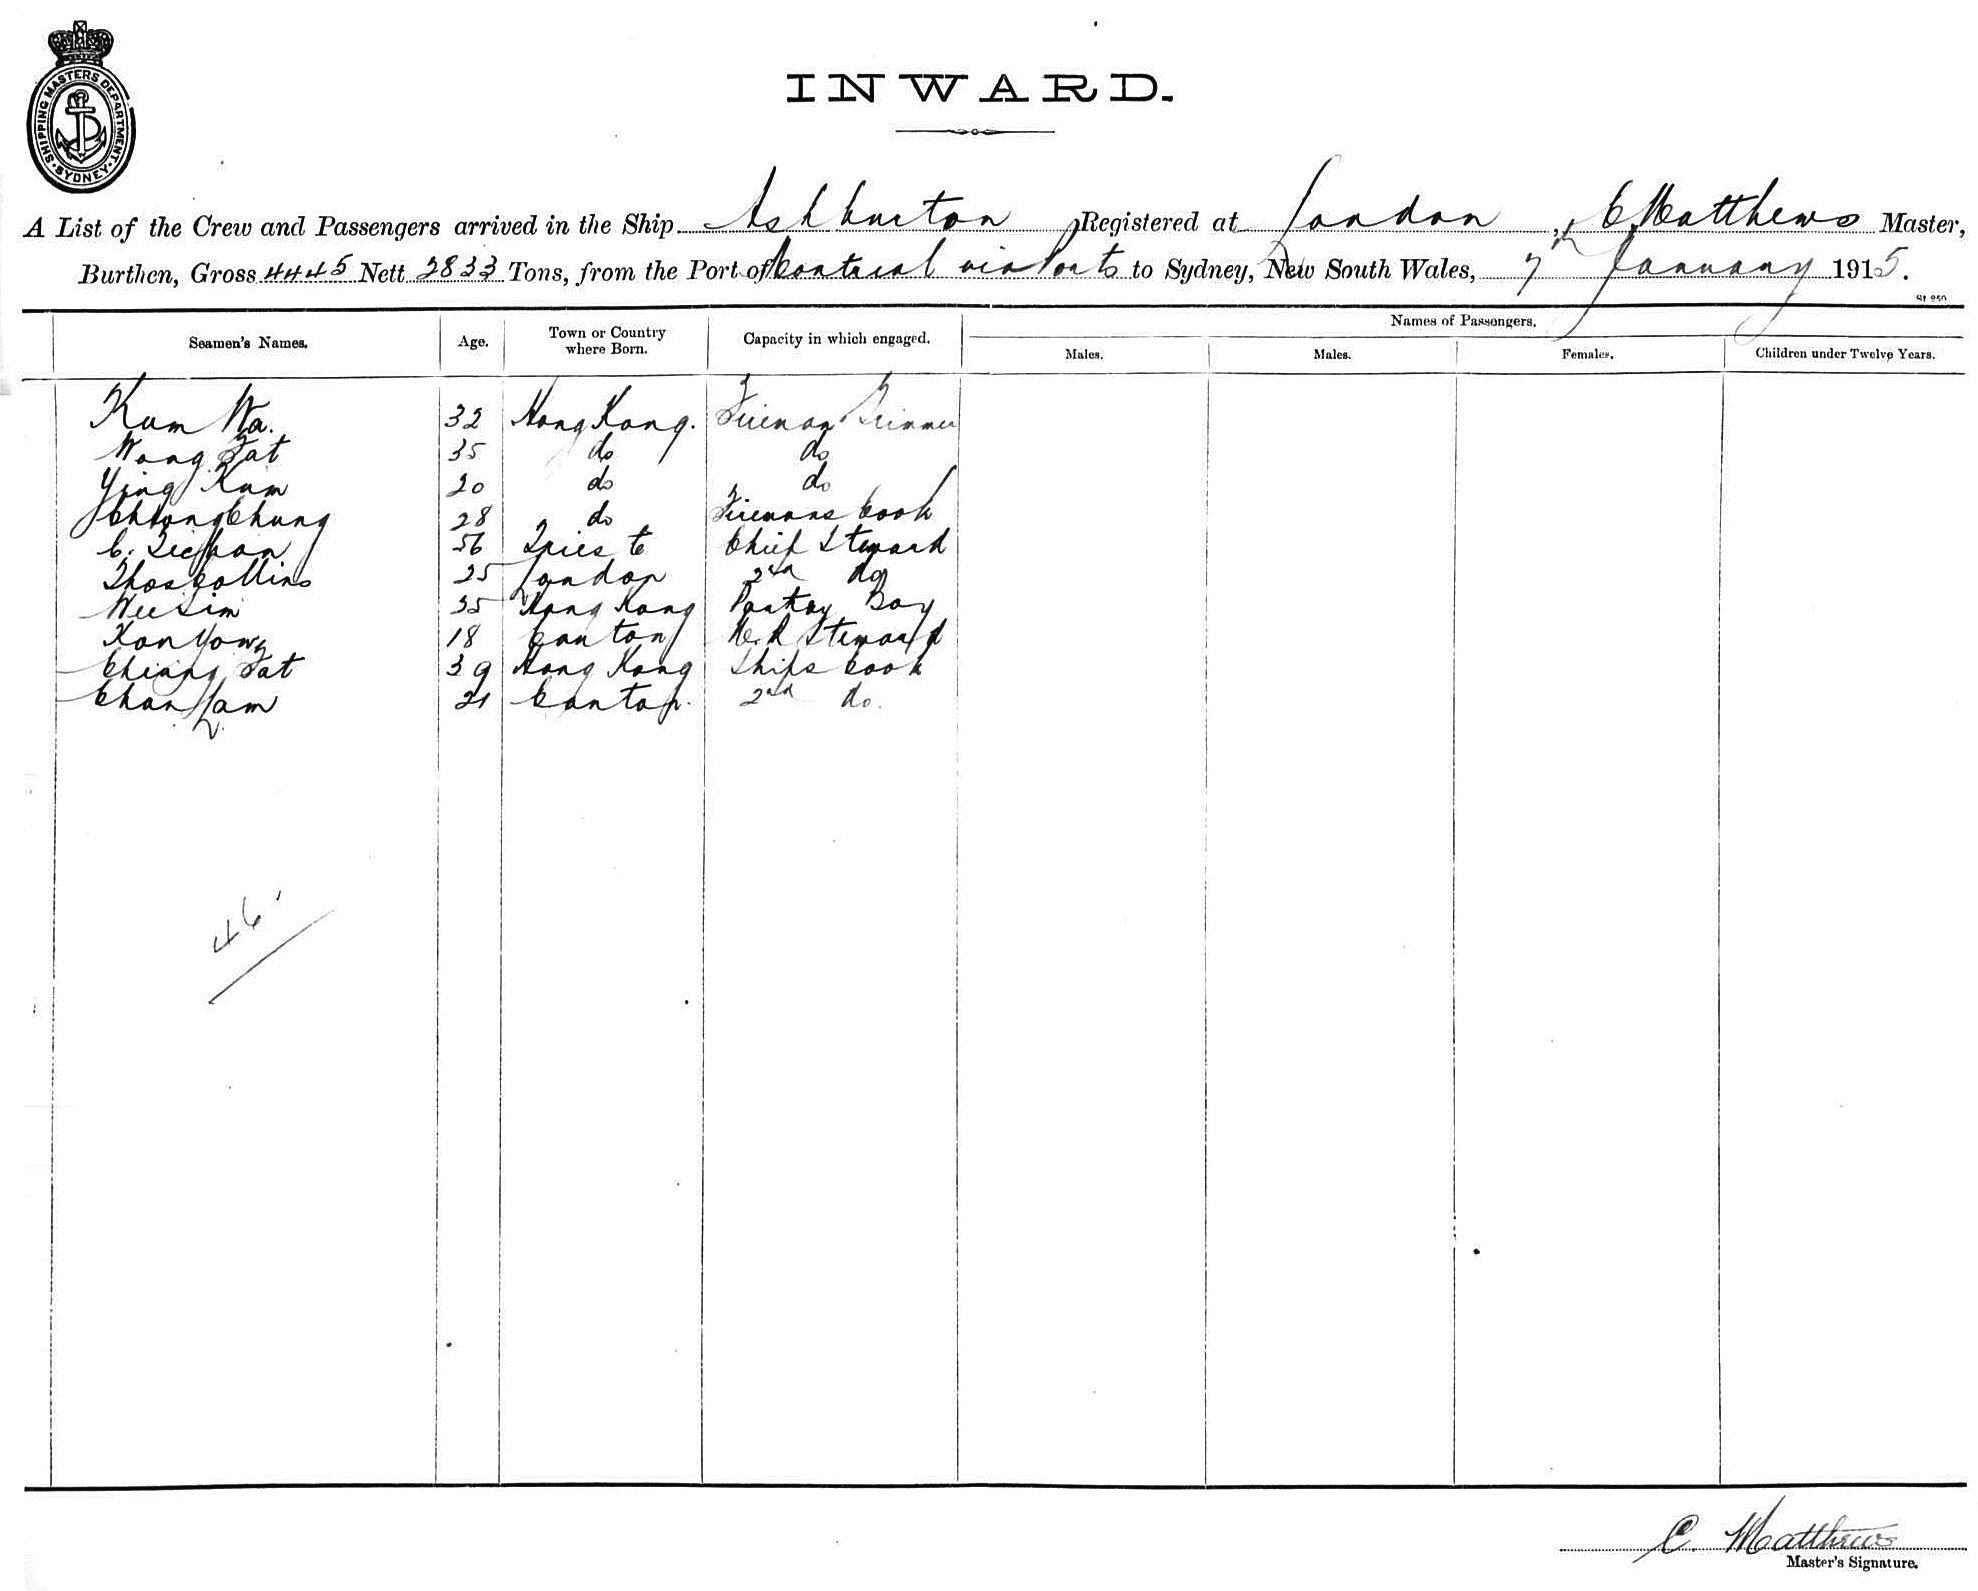 SHIPPING MASTERS DEPARTMENT
SYDNEY
INWARD.
A List of the Crew and Passengers arrived in the Ship Ashburton Registered at London, C Matthews Master,
Burthen, Gross 4445 Nett 2833 Tons, from the Port of Montreal via Ports to Sydney, New South Wales, 7th January 1915.
Names of Passengers.
Seamen's Names. Age. Town or Country where Born. Capacity in which engaged. Males. Males. Females. Children under Twelve Years.
Kum Wa. 32 Hong Kong. Fireman Trimmer
Wong Fat 35 do do
Ying Kum 20 do do
Chung 28 do Firemans Cook
C. 56 Trieste Chief Steward
Thos Collins 25 London 2nd do
Wee Sim 35 Hong Kong Pantry Boy
Kon Yong 18 Canton M. R Steward
Chiang Fat 39 Hong Kong Ships Cook
Chan Lam 21 Canton. 2nd do.
46.
C. Matthews
Master's Signature.